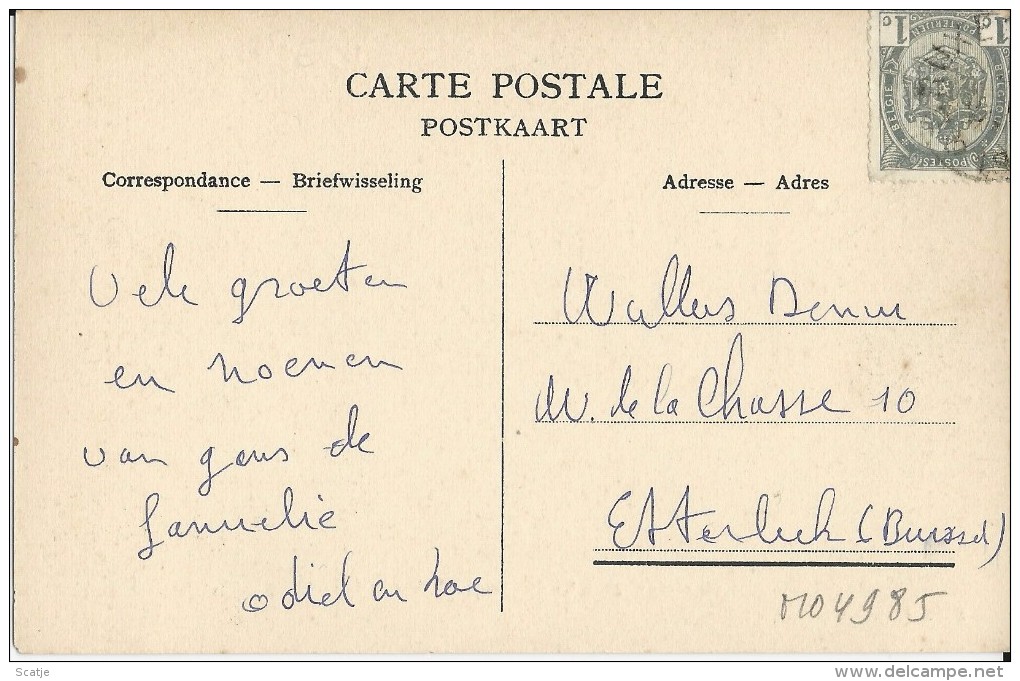 CARTE POSTALE
POSTKAART
Correspondance — Briefwisseling
Vele groeten
en noenen
van gans de
famielie
odiel en
Adresse — Adres
Wallers
Av. de la Chasse 10
Etterbeek (Brussel)
M04985
1c 1c
POSTERIJEN
BELGIE BELGIQUE
POSTES
Scatje
delcampe.net